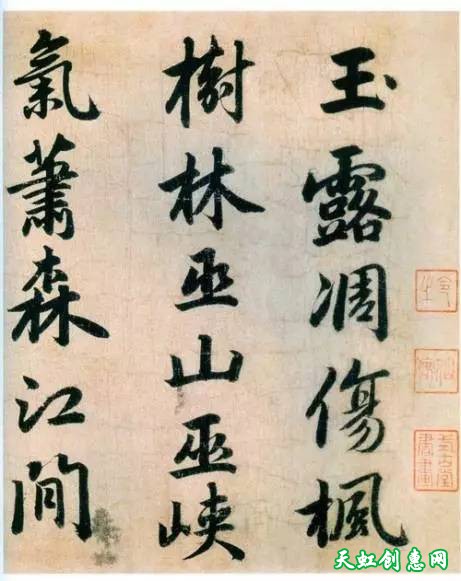 玉露凋傷楓
樹林巫山巫峽
氣蕭森江間
天虹创惠网